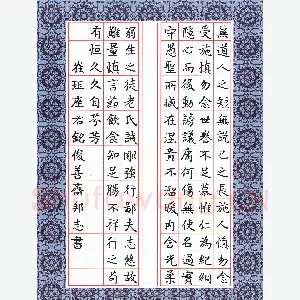 無道人之短無說己之長施人慎勿念
受施慎勿忘世譽不足慕惟仁為紀綱
隱心而後動謗議庸何傷無使名過實
守愚聖所臧在涅貴不淄曖內含光柔
弱生之徒老氏誡剛強行鄙夫志悠故
難量慎言節飲食知足勝不祥行之苟
有恒久久自芬芳
崔瑗座右銘 俊善齋邦志書